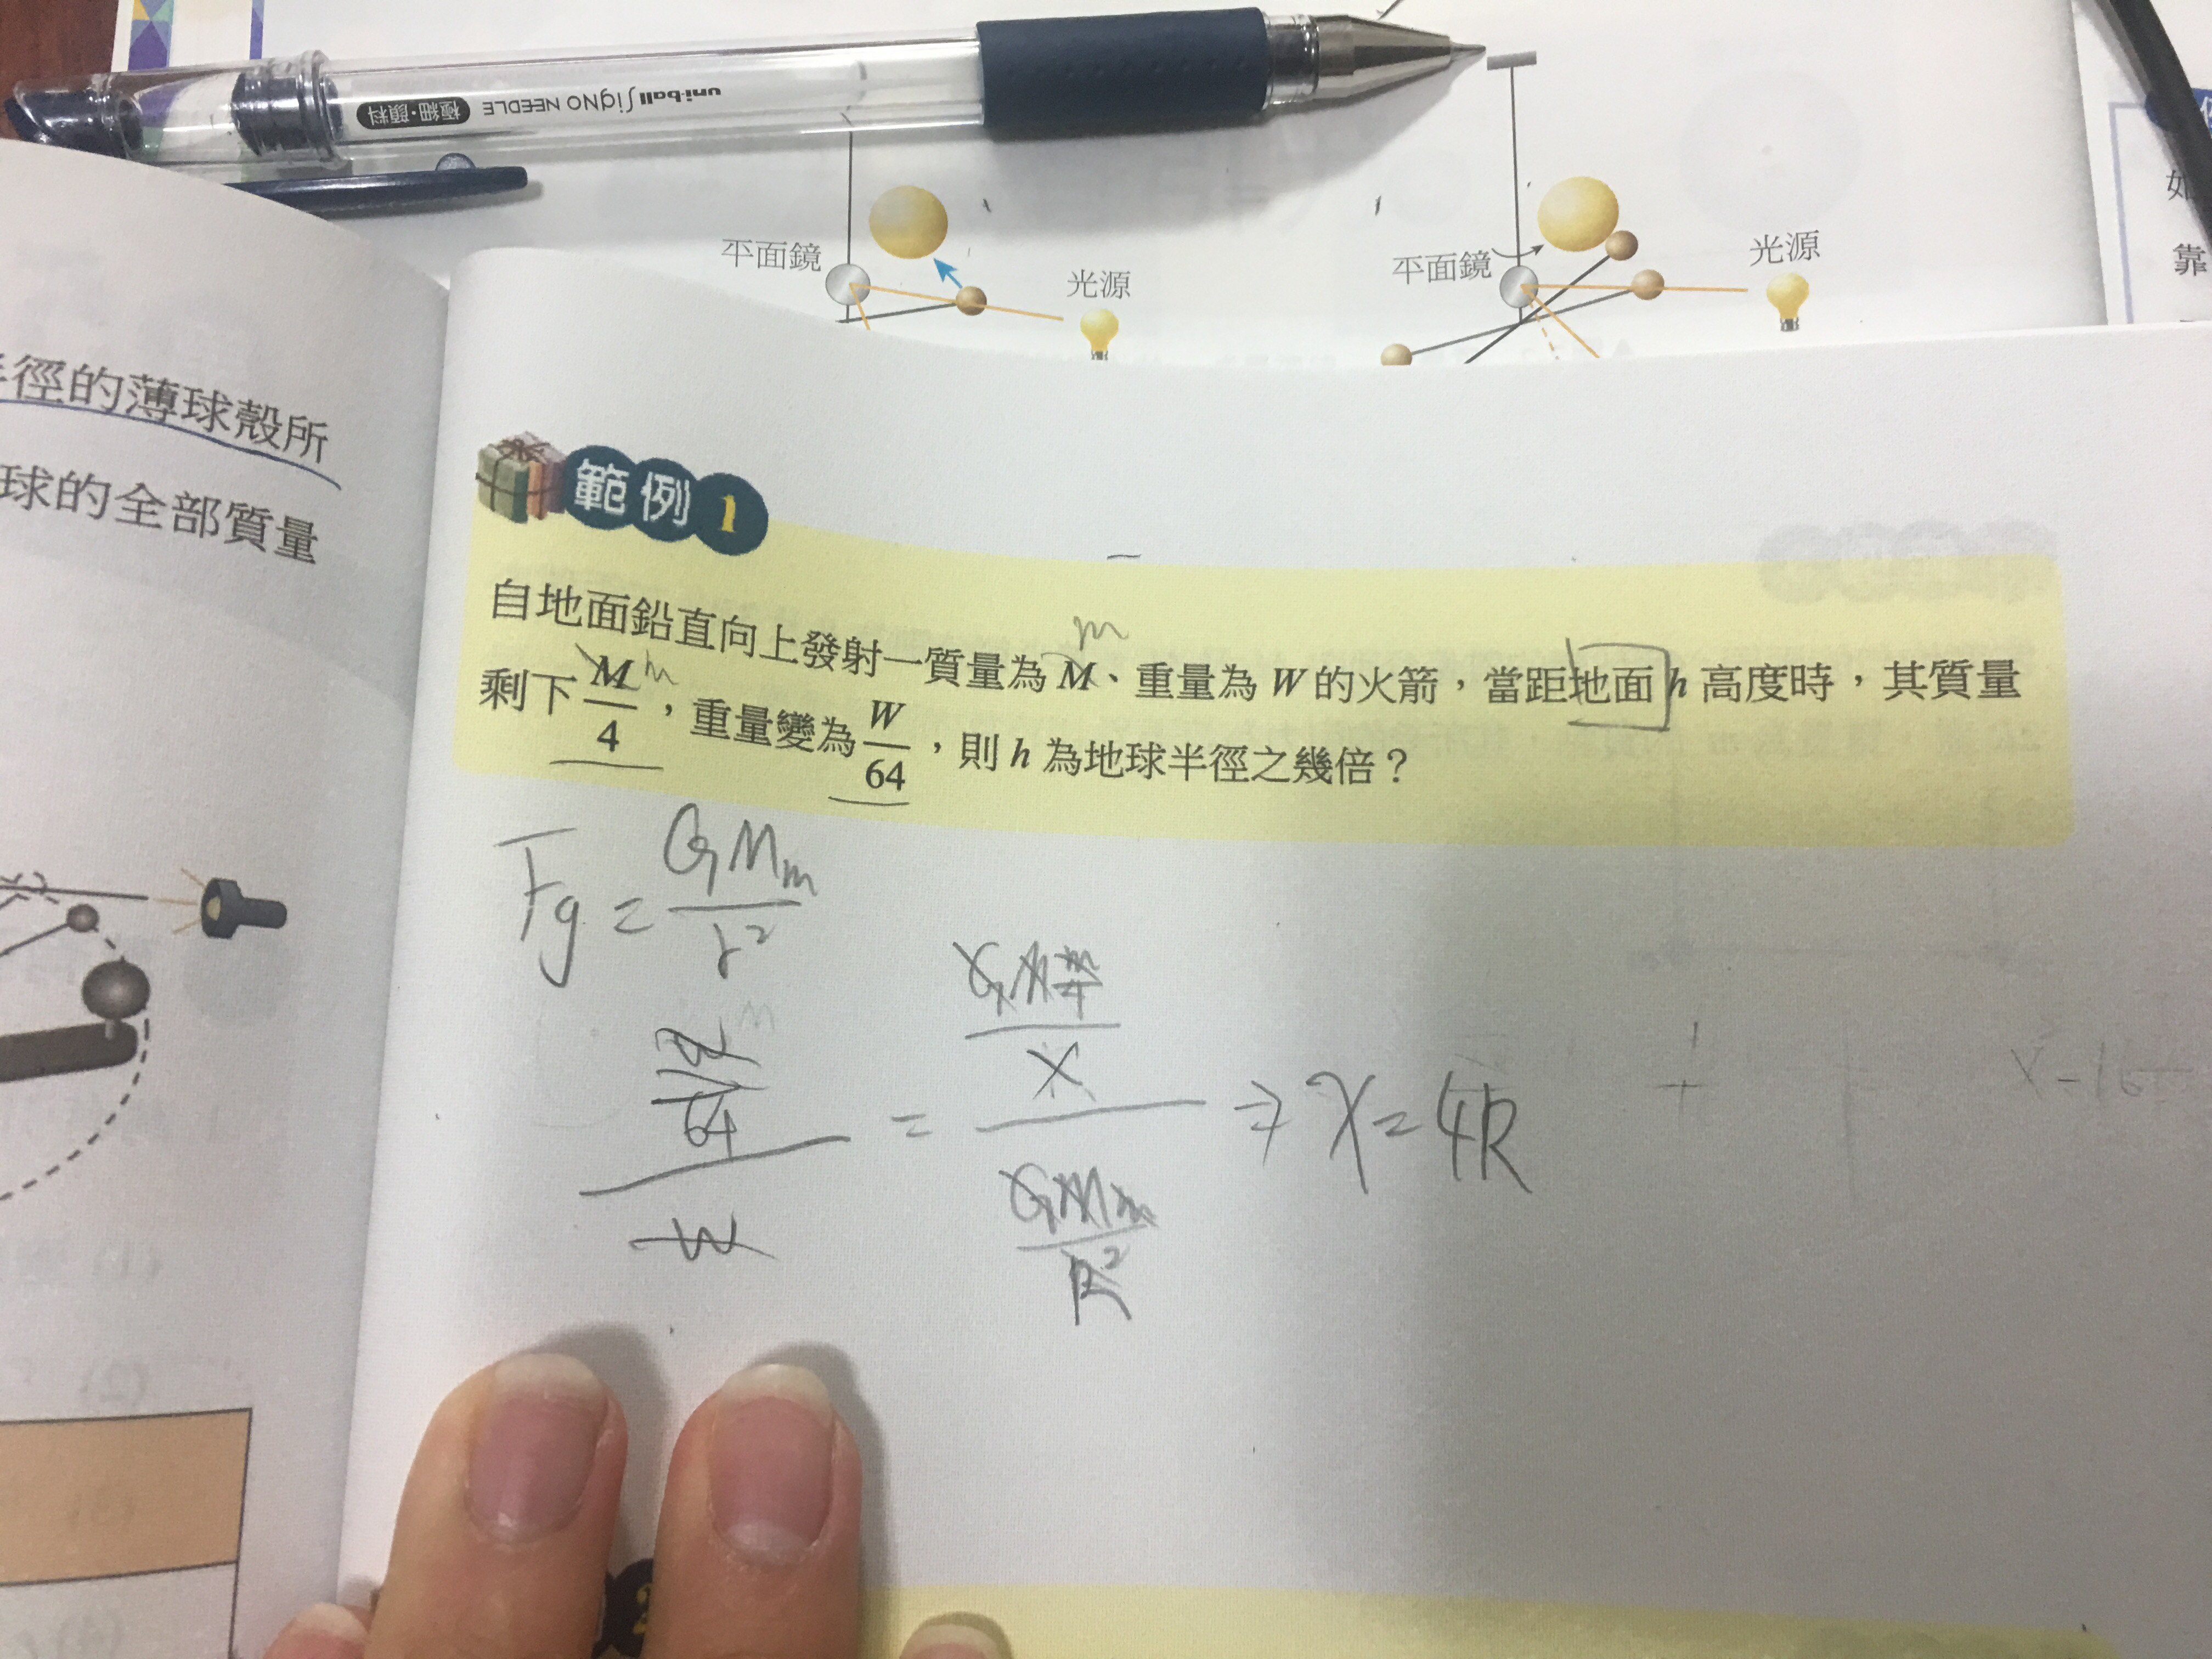 uni-ball SigNO NEEDLE 極細・顔料
平面鏡
光源
平面鏡
光源
如
靠
徑的薄球殼所
球的全部質量
範例1
自地面鉛直向上發射一質量為M、重量為W的火箭，當距地面h高度時，其質量
m
剩下M/4，重量變為W/64，則h為地球半徑之幾倍？
m
Fg = GMm/r²
W/64 / W = GMm/4 / X / GMm/R² ⇒ X = 4R
2